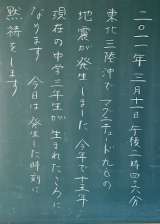 二〇一一年 三月十一日 午後二時四六分
東北三陸沖でマグニチュード九.〇の
地震が発生しました 今年で十五年
現在の中学三年生が生まれたころに
なります 今日は発生した時刻に
黙祷をします